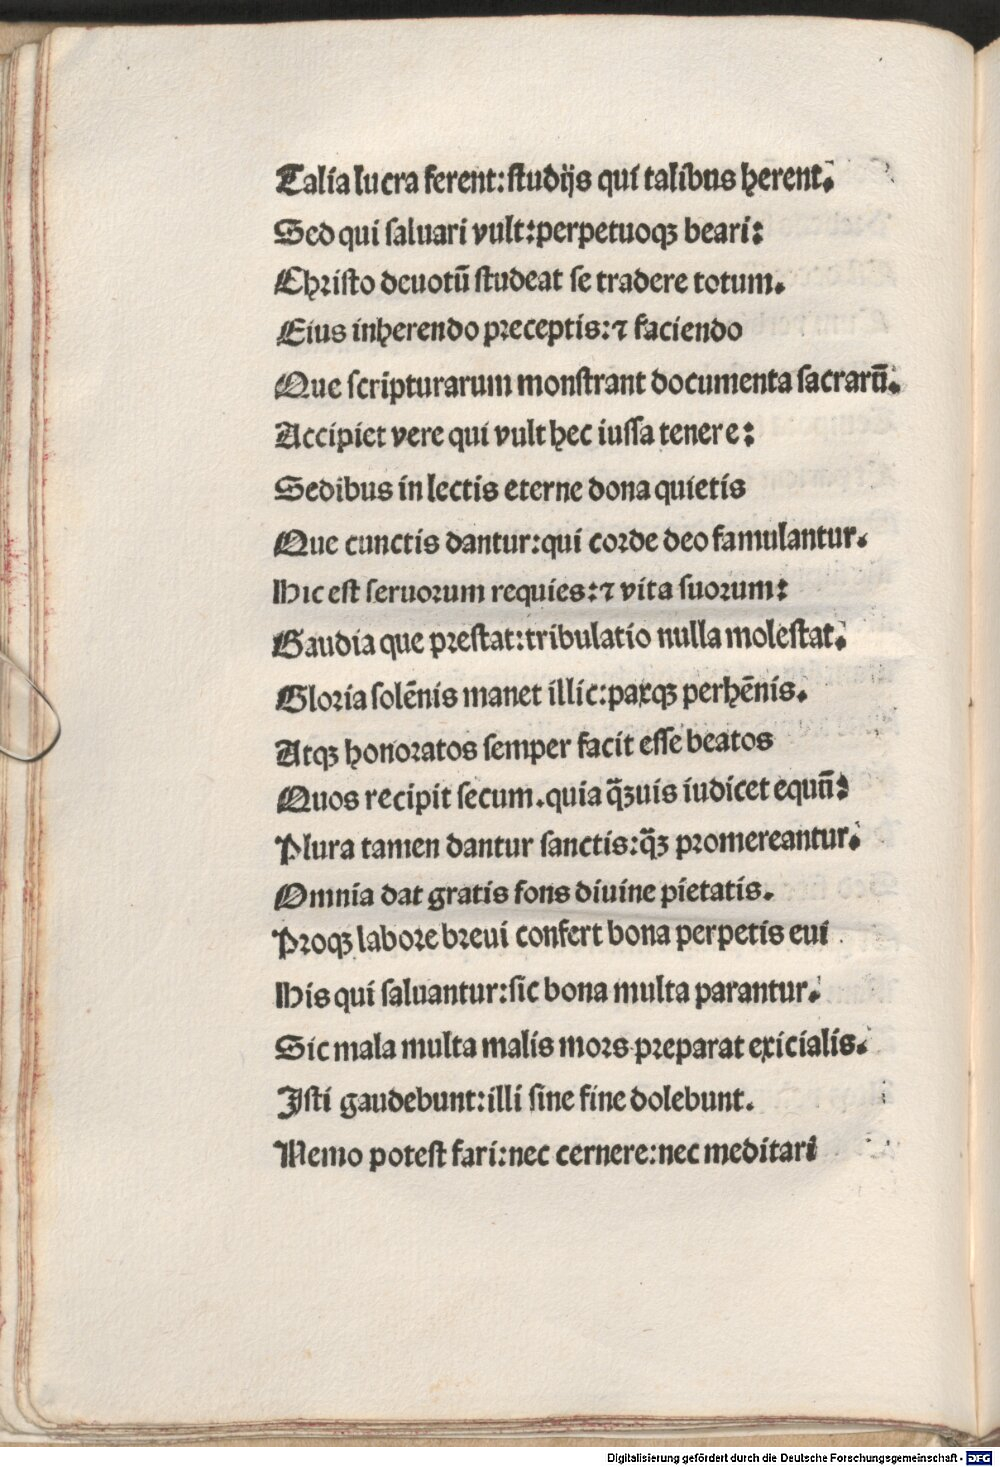 Talia lucra ferent: studijs qui talibus herent.
Sed qui saluari vult: perpetuoqꝫ beari:
Christo deuotū studeat se tradere totum.
Eius inherendo preceptis: ⁊ faciendo
Que scripturarum monstrant documenta sacrarū.
Accipiet vere qui vult hec iussa tenere:
Sedibus in lectis eterne dona quietis
Que cunctis dantur: qui corde deo famulantur.
Hic est seruorum requies: ⁊ vita suorum:
Gaudia que prestat: tribulatio nulla molestat.
Gloria solēnis manet illic: paxqꝫ perhēnis.
Atqꝫ honoratos semper facit esse beatos
Quos recipit secum. quia q̄ꝫuis iudicet equū:
Plura tamen dantur sanctis: q̄ꝫ promereantur.
Omnia dat gratis fons diuine pietatis.
Proqꝫ labore breui confert bona perpetis eui
His qui saluantur: sic bona multa parantur.
Sic mala multa malis mors preparat exicialis.
Isti gaudebunt: illi sine fine dolebunt.
Nemo potest fari: nec cernere: nec meditari
Digitalisierung gefördert durch die Deutsche Forschungsgemeinschaft - DFG